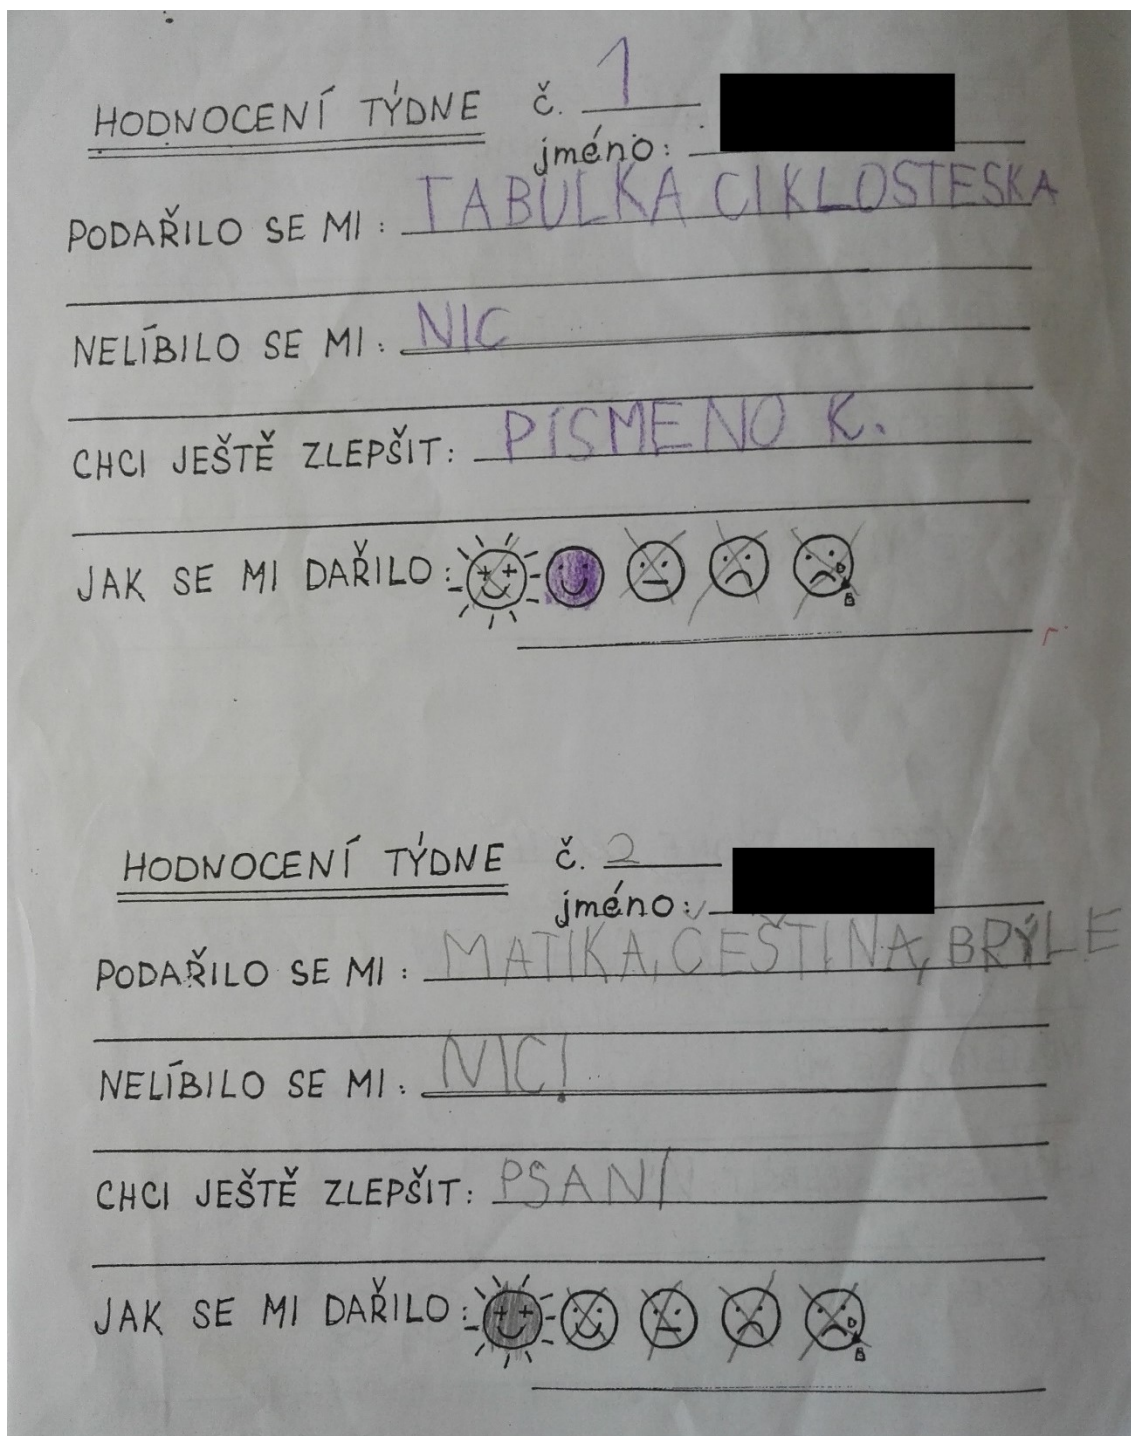 HODNOCENÍ TÝDNE č. 1
jméno:
PODAŘILO SE MI: TABULKA CIKLOSTESKA
NELÍBILO SE MI: NIC
CHCI JEŠTĚ ZLEPŠIT: PÍSMENO K.
JAK SE MI DAŘILO:
HODNOCENÍ TÝDNE č. 2
jméno:
PODAŘILO SE MI: MATIKA, ČEŠTINA, BRÝLE
NELÍBILO SE MI: NIC!
CHCI JEŠTĚ ZLEPŠIT: PSANÍ
JAK SE MI DAŘILO: